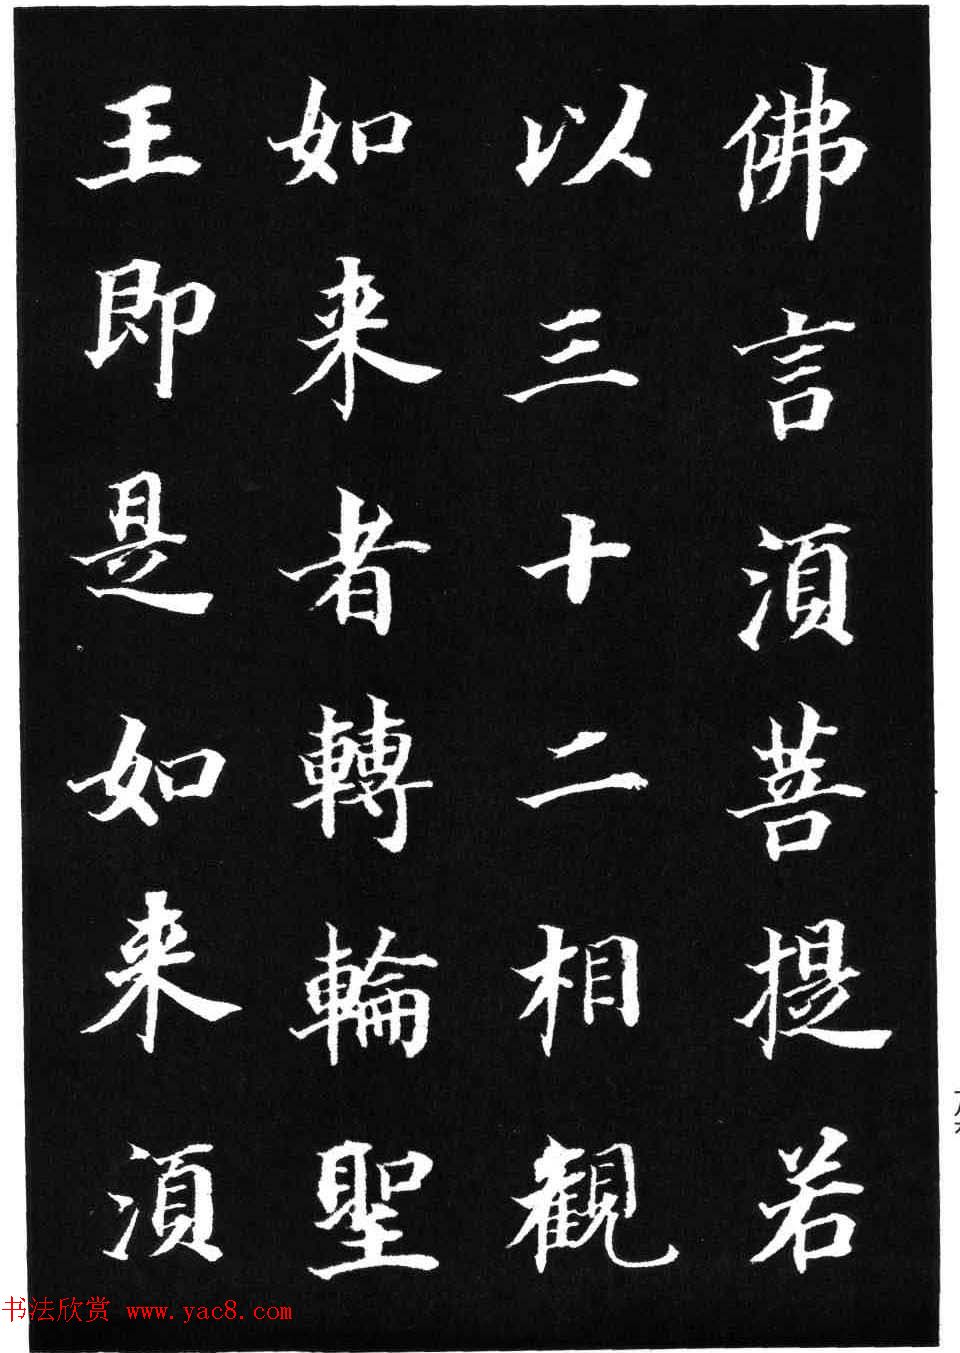 佛言湏菩提若
以三十二相觀
如来者轉輪聖
王即是如来湏
书法欣赏 www.yac8.com